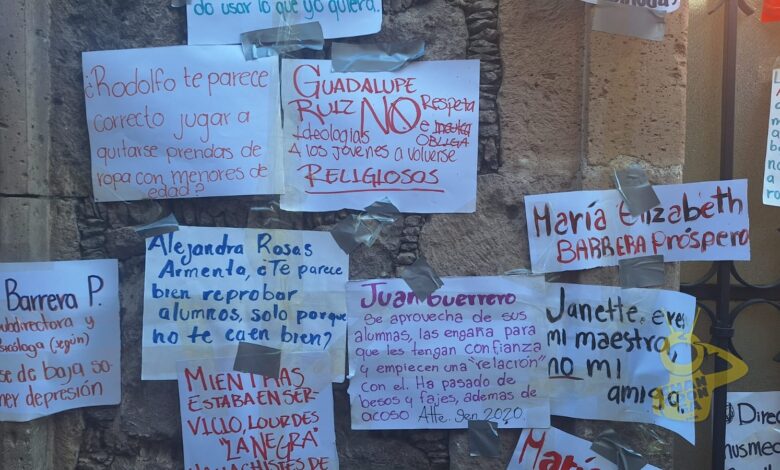 do usar lo que yo quiera.
¿Rodolfo te parece
correcto jugar a
quitarse prendas de
ropa con menores de
edad?
GUADALUPE
RUIZ NO Respeta
ideologias e
OBLIGA
A LOS JÓVENES A VOLVERSE
RELIGIOSOS
María Elizabeth
BARRERA Próspero
Barrera P.
subdirectora y
(según)
se de baja so-
ner depresión
Alejandra Rosas
Armenta, ¿Te parece
bien reprobar
alumnos, solo porque
no te caen bien?
Juan Guerrero
Se aprovecha de sus
alumnas, las engaña para
que les tengan confianza
y empiecen una "relación"
con el. Ha pasado de
besos y fajes, ademas de
acoso Atte. Gen 2020.
Janette, eres
mi maestra,
no mi
amiga.
MIENTRAS
ESTABA EN SER-
VICIO, LOURDES
"LA NEGRA"
MACHISTES DE
MARÍA
Direc
husmec